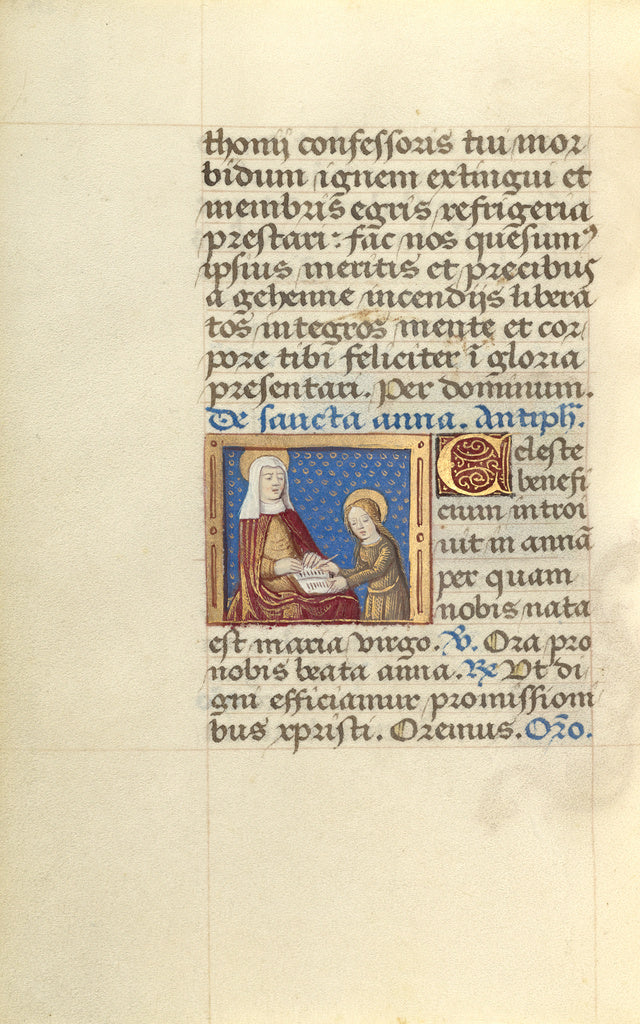 thonij confessoris tui mor
bidum ignem extingui et
membris egris refrigeria
prestari: fac nos quesumꝰ
ipsius meritis et precibus
a gehenne incendijs libera
tos integros mente et cor
pore tibi feliciter ī gloria
presentari. Per dominum.
De sancta anna. Antiph̄.
Celeste
benefi
cium introi
uit in annā
per quam
nobis nata
est maria virgo. ℣. Ora pro
nobis beata anna. ℞ Vt di
gni efficiamur promissioni
bus xpristi. Oremus. Oro̅.